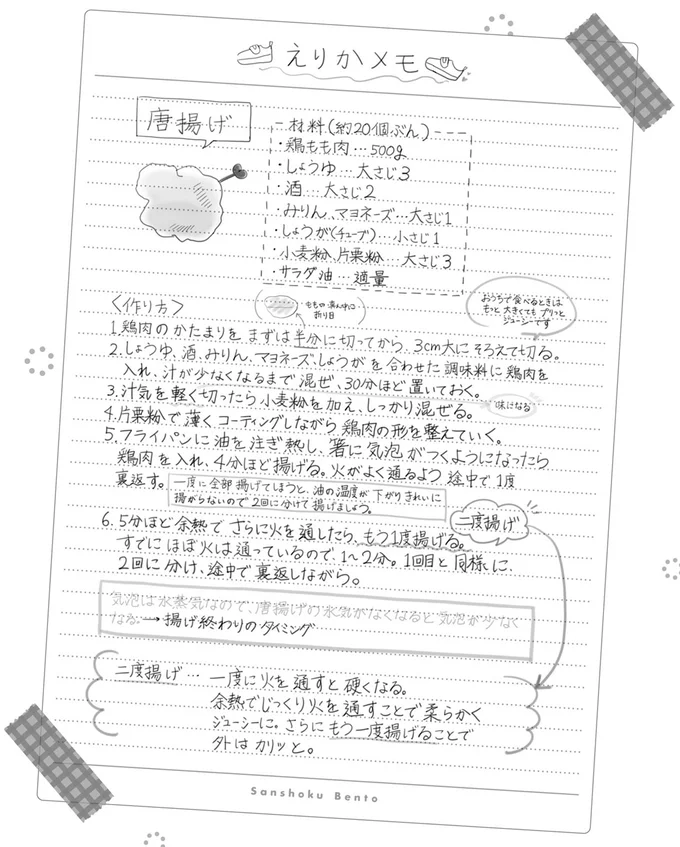 えりかメモ
唐揚げ
材料(約20個ぶん)
・鶏もも肉…500g
・しょうゆ…大さじ3
・酒…大さじ2
・みりん、マヨネーズ…大さじ1
・しょうが(チューブ)…小さじ1
・小麦粉、片栗粉…大さじ3
・サラダ油…適量
おうちで食べるときは
もっと大きくてもプリっと
ジューシーです
ももの真ん中に
折り目
〈作り方〉
1.鶏肉のかたまりをまずは半分に切ってから、3cm大にそろえて切る。
2.しょうゆ、酒、みりん、マヨネーズ、しょうがを合わせた調味料に鶏肉を
入れ、汁が少なくなるまで混ぜ、30分ほど置いておく。
味になる
3.汁気を軽く切ったら小麦粉を加え、しっかり混ぜる。
4.片栗粉で薄くコーティングしながら鶏肉の形を整えていく。
5.フライパンに油を注ぎ熱し、箸に気泡がつくようになったら
鶏肉を入れ、4分ほど揚げる。火がよく通るよう途中で1度
裏返す。
一度に全部揚げてしまうと、油の温度が下がりきれいに
揚がらないので2回に分けて揚げましょう。
二度揚げ
6.5分ほど余熱でさらに火を通したら、もう1度揚げる。
すでにほぼ火は通っているので1〜2分。1回目と同様に、
2回に分け、途中で裏返しながら。
気泡は水蒸気なので、唐揚げの水気がなくなると気泡が少なく
なる→揚げ終わりのタイミング
二度揚げ…一度に火を通すと硬くなる。
余熱でじっくり火を通すことで柔らかく
ジューシーに。さらにもう一度揚げることで
外はカリッと。
Sanshoku Bento